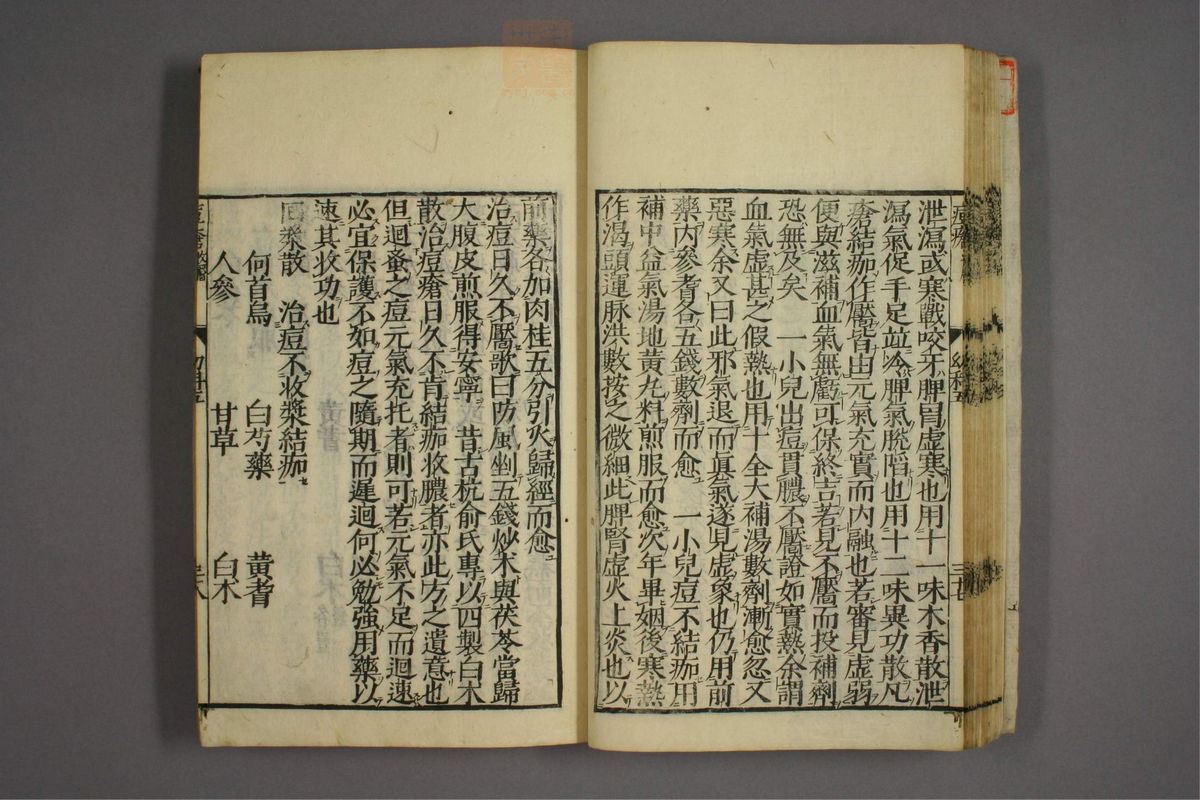 泄瀉或寒戰咬牙脾胃虛寒也用十一味木香散泄
瀉氣促手足並冷脾氣脫陷也用十二味異功散凡
瘡結痂作靨皆由元氣充實而内融也若審見虛弱
便與滋補血氣無虧可保終吉若見不靨而投補劑
恐無及矣 一小兒出痘貫膿不靨證如實熱余謂
血氣虛甚之假熱也用十全大補湯數劑漸愈忽又
惡寒余又曰此邪氣退而眞氣遂見虛象也仍用前
藥内參耆各五錢數劑而愈 一小兒痘不結痂用
補中益氣湯地黃丸料煎服而愈次年畢姻後寒熱
作渴頭運脉洪數按之微細此脾腎虛火上炎也以
前藥各加肉桂五分引火歸經而愈
治痘日久不靨歌曰防風剉五錢炒木與茯苓當歸
大腹皮煎服得安寧 昔古杭俞氏專以四製白木
散治痘瘡日久不肯結痂收膿者亦此方之遺意也
但迴蚤之痘元氣充托者則可若元氣不足而迴速
必宜保護不如痘之隨期而遲迴何必勉強用藥以
速其收功也
回漿散 治痘不收漿結痂
何首烏 白芍藥 黃耆
人參 甘草 白木